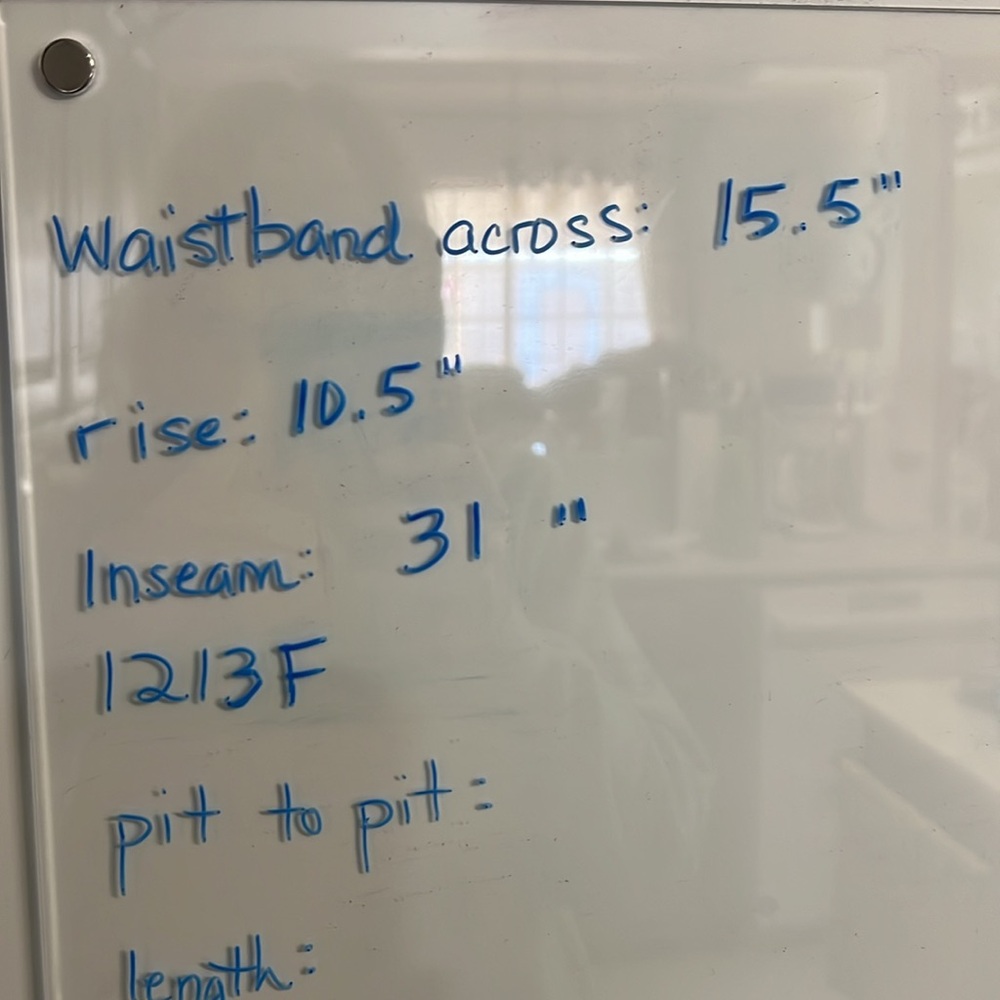 Waistband across: 15.5"
rise: 10.5"
Inseam: 31 "
1213F
pit to pit:
length: